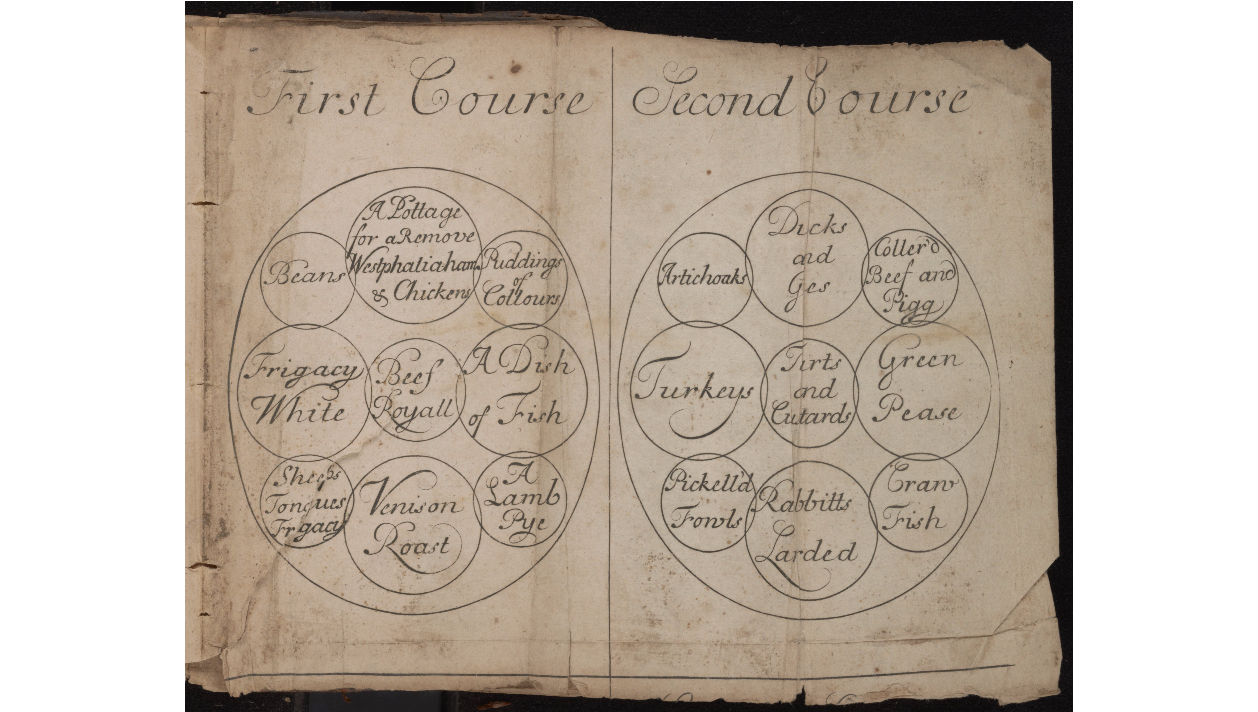 First Course
A Pottage
for a Remove
Westphaliaham
& Chickens
Beans
Puddings
of
Collours
Frigacy
White
Beef
Royall
A Dish
of Fish
Sheeps
Tongues
Frgacy
Venison
Roast
A
Lamb
Pye
Second Course
Ducks
and
Ges
Artichoaks
Coller'd
Beef and
Pigg
Turkeys
Tirts
and
Cutards
Green
Pease
Pickell'd
Fowls
Rabbitts
Larded
Craw
Fish